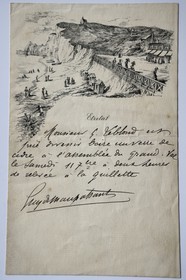 Etretat
Monsieur C Leblond est
prié de venir boire une velte de
cidre à l'assemblée du grand-Val
le Samedi 11 7bre à deux heures
de relevée à la Guillette
Guy de Maupassant